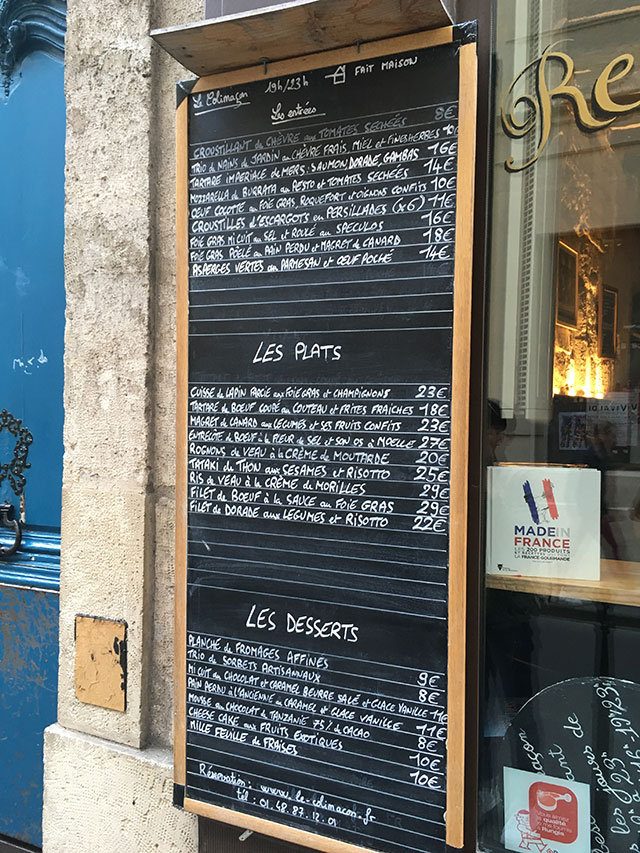 Le Colimaçon 19h/23h FAIT MAISON
Les entrées
CROUSTILLANT de CHÈVRE aux TOMATES SÉCHÉES 8€
TRIO de NAINS de JARDIN au CHÈVRE FRAIS, MIEL et FINES HERBES 10€
TARTARE IMPERIALE de MERS: SAUMON DORADE, GAMBAS 16€
MOZZARELLA di BURRATA au PESTO et TOMATES SECHÉES 14€
OEUF COCOTTE au FOIE GRAS, ROQUEFORT et OIGNONS CONFITS 10€
CROUSTILLES D'ESCARGOTS en PERSILLADES (x6) 11€
FOIE GRAS MI CUIT au SEL et ROULÉ au SPECULOS 16€
FOIE GRAS POÊLÉ au PAIN PERDU et MAGRET de CANARD 18€
ASPERGES VERTES au PARMESAN et OEUF POCHÉ 14€
LES PLATS
CUISSE de LAPIN FARCIE aux FOIE GRAS et CHAMPIGNONS 23€
TARTARE de BOEUF COUPÉ au COUTEAU et FRITES FRAICHES 18€
MAGRET de CANARD aux LEGUMES et SES FRUITS CONFITS 23€
ENTRECÔTE de BOEUF à la FLEUR de SEL et SON OS à MOELLE 27€
ROGNONS de VEAU à la CRÈME de MOUTARDE 20€
TATAKI de THON aux SESAMES et RISOTTO 25€
RIS de VEAU à la CRÈME de MORILLES 29€
FILET de BOEUF à la SAUCE au FOIE GRAS 29€
FILET de DORADE aux LEGUMES et RISOTTO 22€
LES DESSERTS
PLANCHE de FROMAGES AFFINES 9€
TRIO de SORBETS ARTISANAUX 8€
MI CUIT au CHOCOLAT et CARAMEL BEURRE SALÉ et GLACE VANILLE 11€
PAIN PERDU à L'ANCIENNE au CARAMEL et GLACE VANILLE 11€
MOUSSE au CHOCOLAT de TANZANIE 75% de CACAO 8€
CHEESE CAKE aux FRUITS EXOTIQUES 10€
MILLE FEUILLE de FRAISES 10€
Réservation: www.le-colimacon.fr
tél: 01.48.87.12.01
Re
MADE IN
FRANCE
LES 200 PRODUITS
LA FRANCE GOURMANDE
la qualité
Rungis